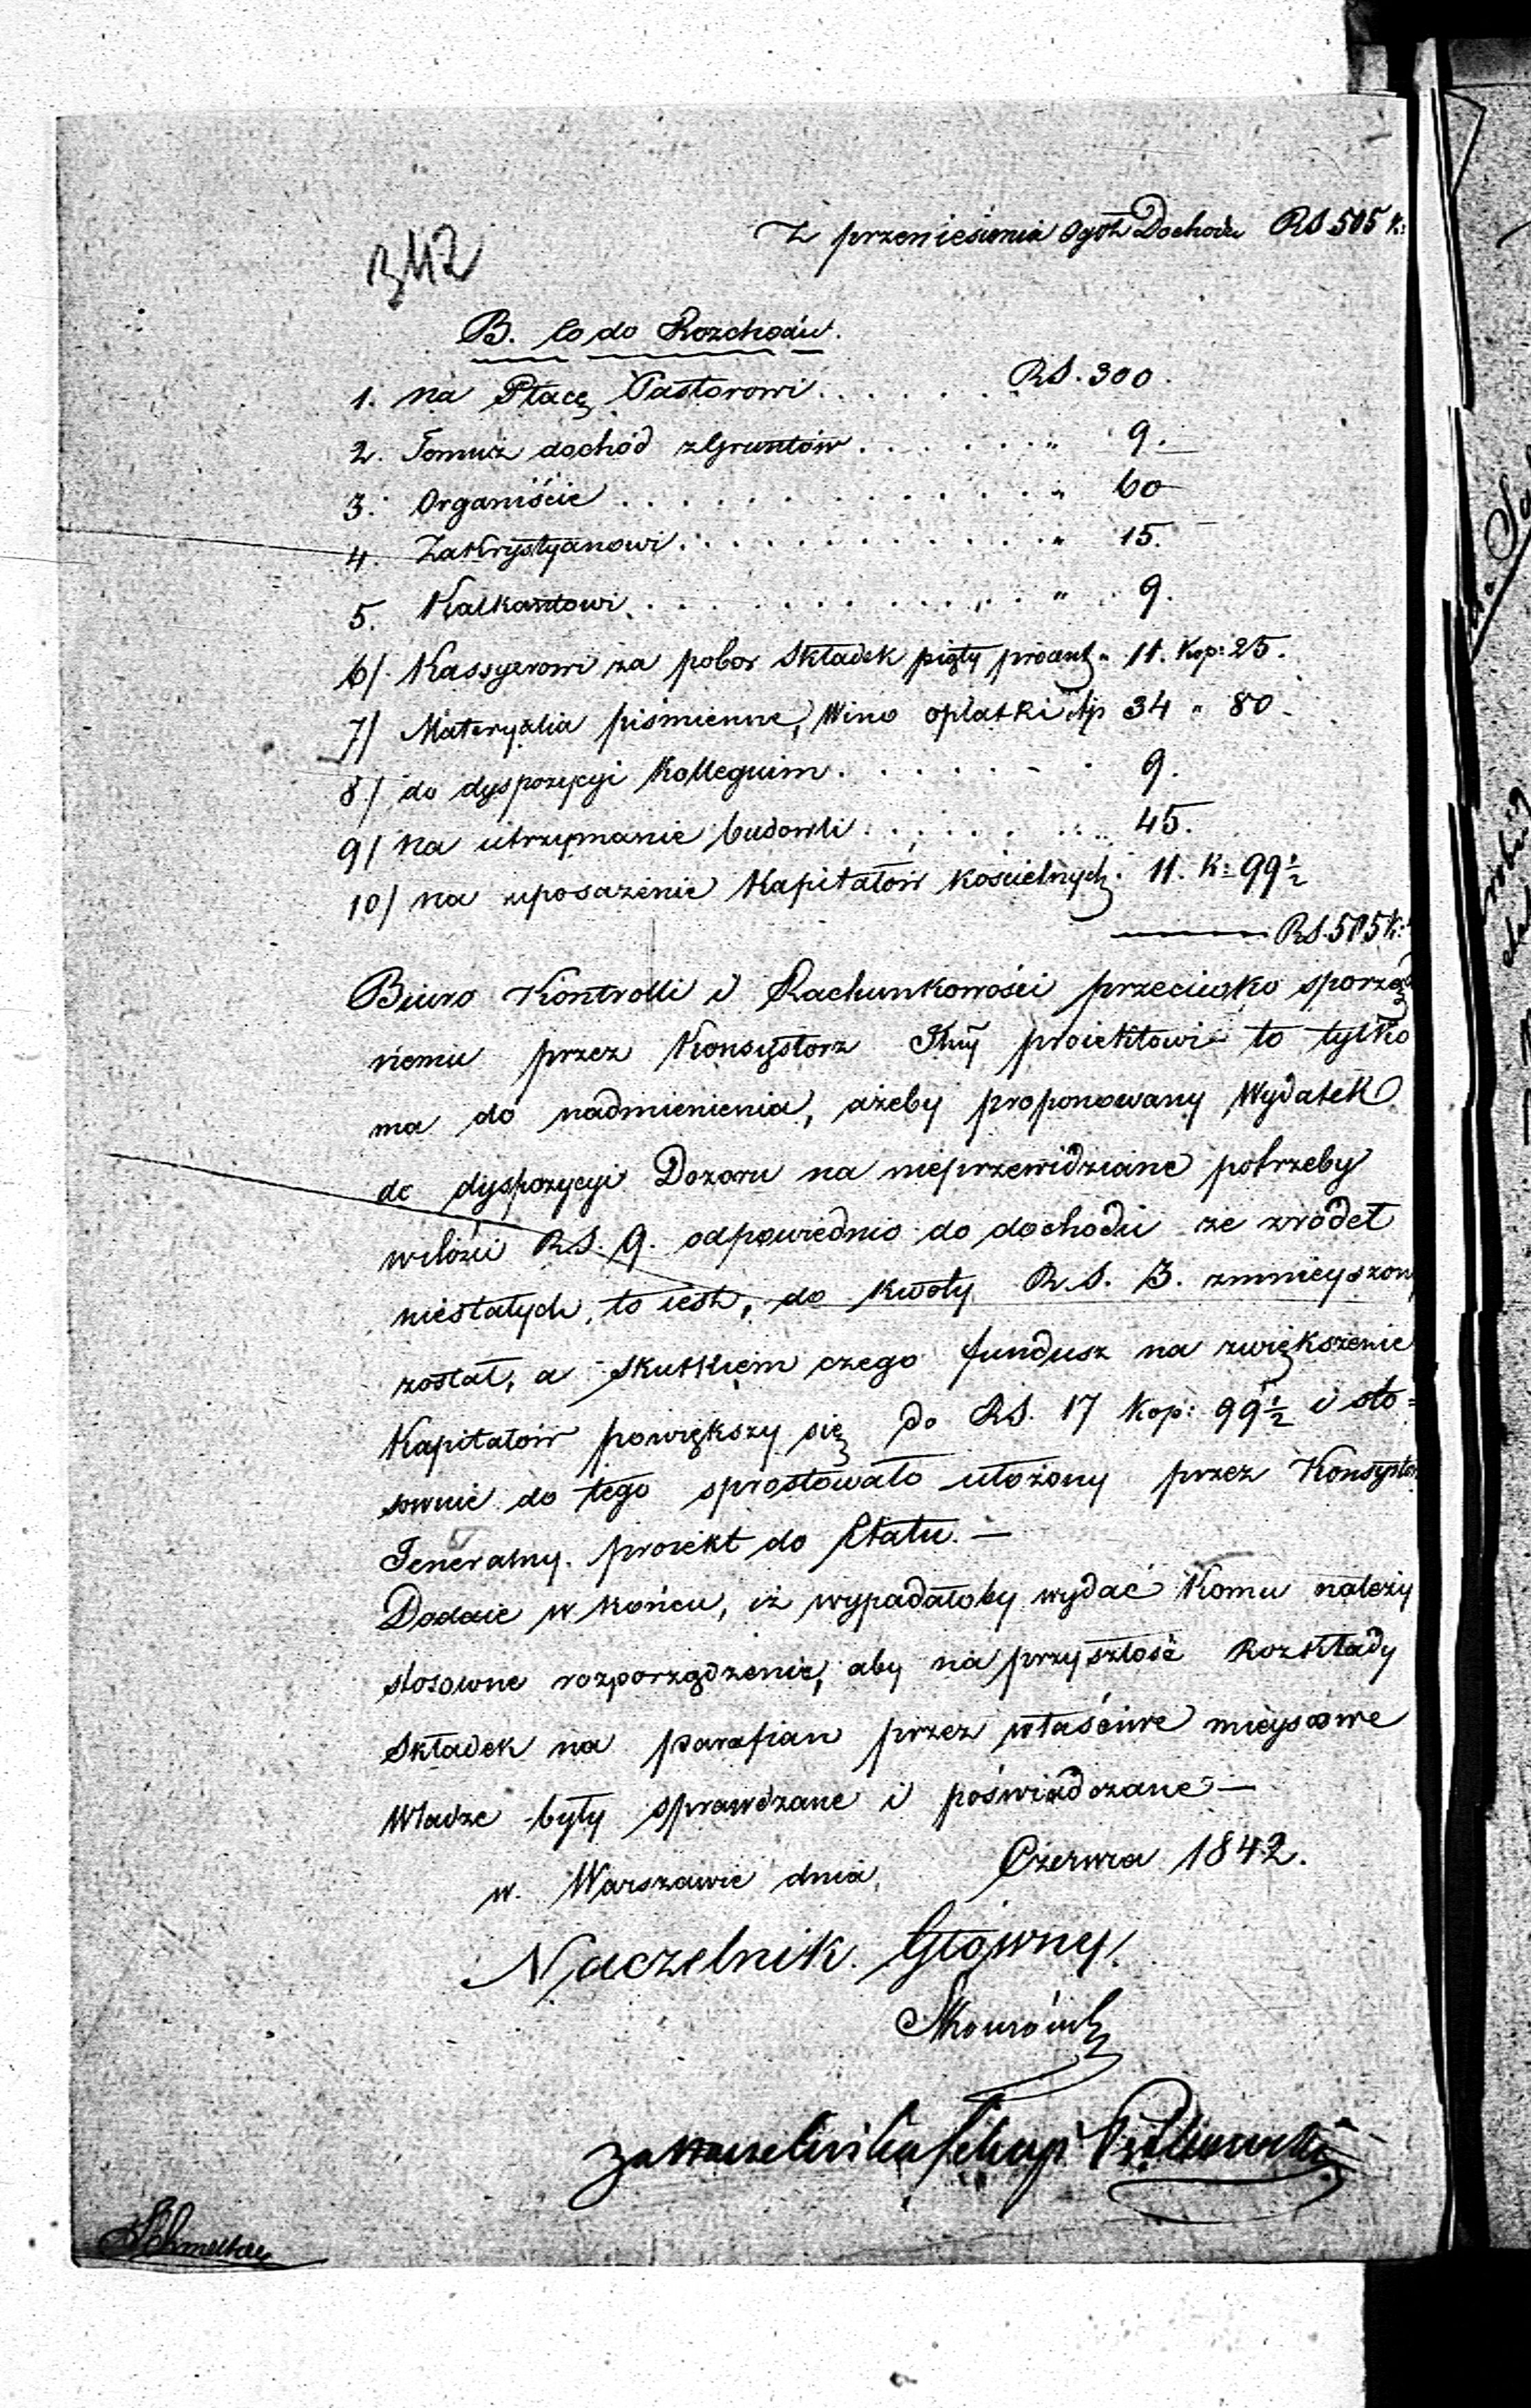 342
Z przeniesienia Ogół Dochodu RS 505 K:
B. Co do Rozchodu.
1. na Płacę Pastorowi . . . . . . RS. 300.
2. Temuż dochód z Gruntów . . . . . . " 9.
3. Organiście . . . . . . . . . . . . " 60
4. Zakrystyanowi . . . . . . . . . . . " 15.
5. Kalkantowi . . . . . . . . . . . . " 9.
6/. Kassyerowi za pobor Składek piąty procent " 11. Kop: 25.
7/ Materyalia piśmienne, Wino opłatki itp 34 " 80 -
8/ do dyspozycyi Kollegium . . . . . - . 9.
9/ Na utrzymanie budowli . . . . . . . . 45.
10/ na uposażenie Kapitałów kościelnych . 11. K: 99½
RS. 505 K:
Biuro Kontrolli i Rachunkowości przeciwko sporzą
niemu przez Konsystorz proiektowi to tylko
ma do nadmienienia, ażeby proponowany Wydatek
do dyspozycyi Dozoru na nieprzewidziane potrzeby
w ilości RS. 9. odpowiednio do dochodu ze źródeł
niestałych, to iest, do kwoty RS. 3. zmnieyszony
został, a skutkiem czego fundusz na zwiększenie
Kapitałów powiększy się do RS. 17 Kop: 99½ i sto=
sownie do tego sprostowało ułożony przez Konsystor
Jeneralny. proiekt do Etatu. —
Dodaie w końcu, iż wypadałoby wydać Komu należy
stosowne rozporządzenie, aby na przyszłość Rozkłady
Składek na parafian przez właściwe mieyscowe
Władze były sprawdzane i poświadczane —
w. Warszawie dnia Czerwca 1842.
Naczelnik Główny.
za Naczelnika Sekcyi